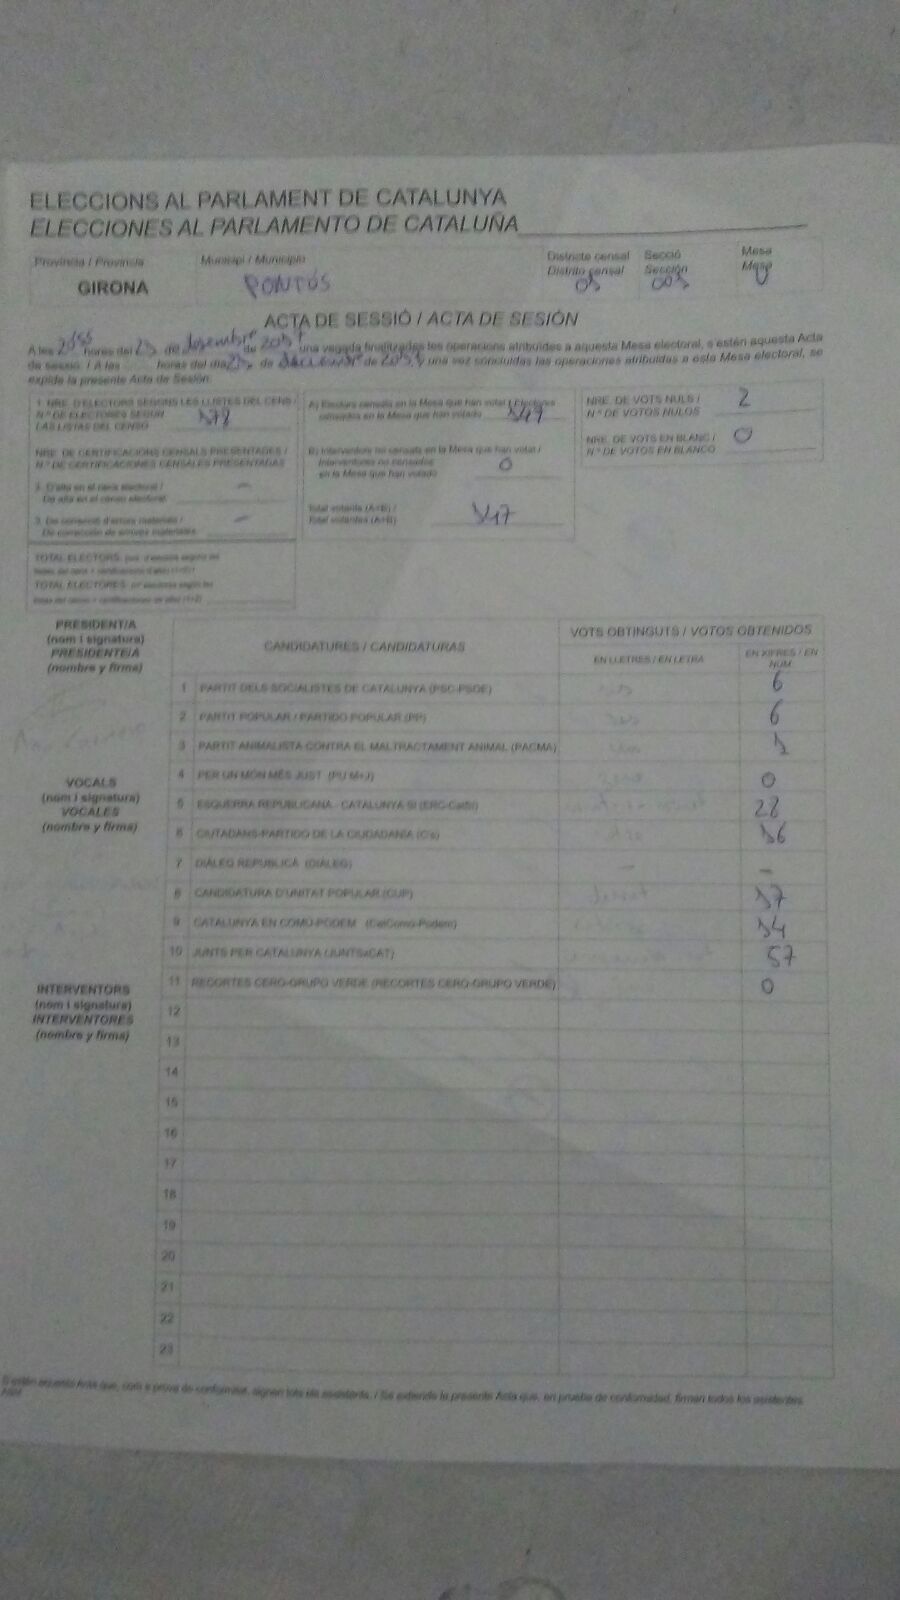 ELECCIONS AL PARLAMENT DE CATALUNYA
ELECCIONES AL PARLAMENTO DE CATALUÑA
Provincia / Provincia
GIRONA
Municipi / Municipio
PONTÓS
Districte censal
Distrito censal
01
Secció
Sección
001
Mesa
Mesa
U
ACTA DE SESSIÓ / ACTA DE SESIÓN
A les hores del 21 de desembre de 2017 una vegada finalitzades les operacions atribuïdes a aquesta Mesa electoral, s'estén aquesta Acta
de sessió. / A las horas del día 21 de de 2017, una vez concluidas las operaciones atribuidas a esta Mesa electoral, se
expide la presente Acta de Sesión.
1. NRE. D'ELECTORS SEGONS LES LLISTES DEL CENS /
N.º DE ELECTORES SEGÚN
LAS LISTAS DEL CENSO 178
NRE. DE CERTIFICACIONS CENSALS PRESENTADES /
N.º DE CERTIFICACIONES CENSALES PRESENTADAS
2. D'alta en el cens electoral /
De alta en el censo electoral –
3. De correcció d'errors materials /
De corrección de errores materiales –
TOTAL ELECTORS
TOTAL ELECTORES
A) Electors censats en la Mesa que han votat / Electores
censados en la Mesa que han votado 147
B) Interventors no censats en la Mesa que han votat /
Interventores no censados
en la Mesa que han votado 0
Total votants (A+B) /
Total votantes (A+B) 147
NRE. DE VOTS NULS /
N.º DE VOTOS NULOS 2
NRE. DE VOTS EN BLANC /
N.º DE VOTOS EN BLANCO 0
PRESIDENT/A
(nom i signatura)
PRESIDENTE/A
(nombre y firma)
VOCALS
(nom i signatura)
VOCALES
(nombre y firma)
INTERVENTORS
(nom i signatura)
INTERVENTORES
(nombre y firma)
CANDIDATURES / CANDIDATURAS
VOTS OBTINGUTS / VOTOS OBTENIDOS
EN LLETRES / EN LETRA
EN XIFRES / EN NÚM.
1 PARTIT DELS SOCIALISTES DE CATALUNYA (PSC-PSOE) 6
2 PARTIT POPULAR / PARTIDO POPULAR (PP) 6
3 PARTIT ANIMALISTA CONTRA EL MALTRACTAMENT ANIMAL (PACMA) 1
4 PER UN MÓN MÉS JUST (PUM+J) 0
5 ESQUERRA REPUBLICANA - CATALUNYA SÍ (ERC-CatSí) 28
6 CIUTADANS-PARTIDO DE LA CIUDADANÍA (C's) 16
7 DIÀLEG REPÚBLICA (DIÀLEG) –
8 CANDIDATURA D'UNITAT POPULAR (CUP) 17
9 CATALUNYA EN COMÚ-PODEM (CatComú-Podem) 14
10 JUNTS PER CATALUNYA (JUNTSxCAT) 57
11 RECORTES CERO-GRUPO VERDE (RECORTES CERO-GRUPO VERDE) 0
12
13
14
15
16
17
18
19
20
21
22
23
S'estén aquesta Acta que, com a prova de conformitat, signen tots els assistents. / Se extiende la presente Acta que, en prueba de conformidad, firman todos los asistentes.